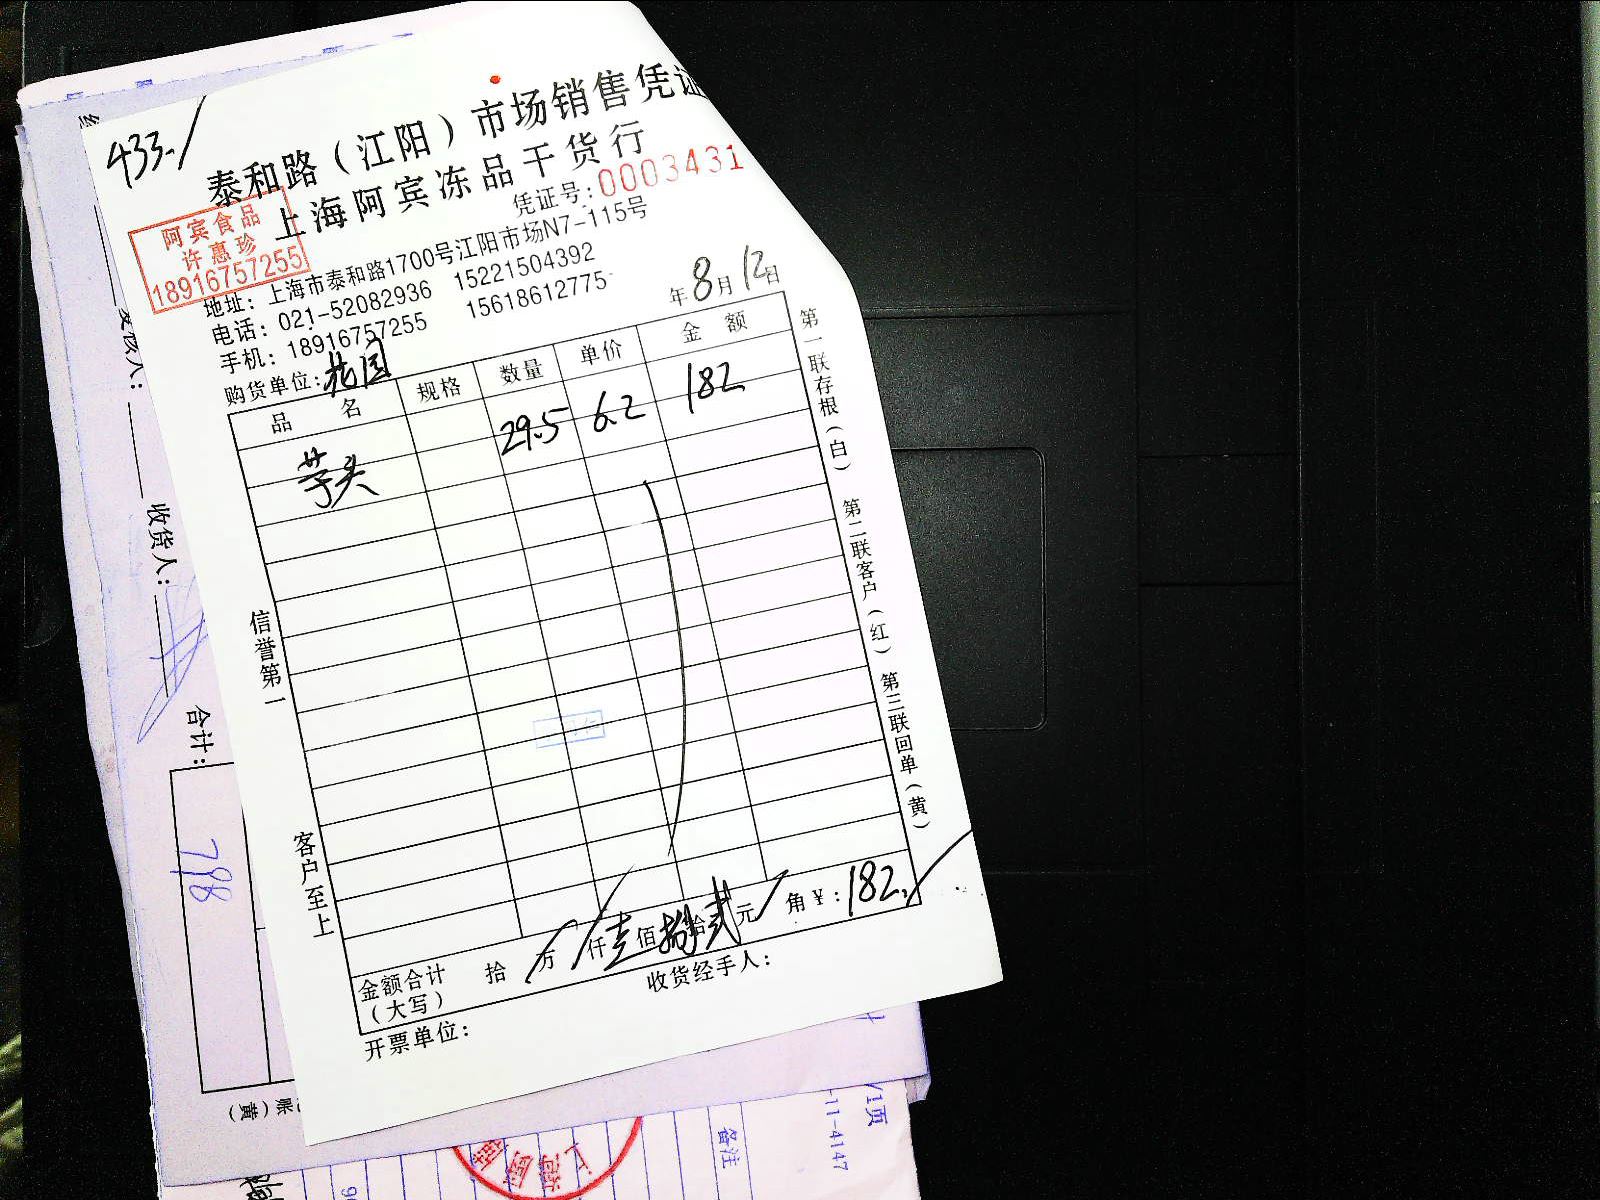 433.
泰和路（江阳）市场销售凭证
上海阿宾冻品干货行
凭证号：0003431
阿宾食品
许惠珍
18916757255
地址：上海市泰和路1700号江阳市场N7-115号
电话：021-52082936 15221504392
手机：18916757255 15618612775
年8月12日
购货单位：花园
品名 规格 数量 单价 金额
芋头 29.5 6.2 182
第一联存根（白） 第二联客户（红） 第三联回单（黄）
信誉第一
客户至上
金额合计（大写） 拾 万 仟壹佰捌拾贰元 角 ¥：182.
收货经手人：
开票单位：
收货人：
合计：
798
账（黄）
/1页
-11-4147
备注